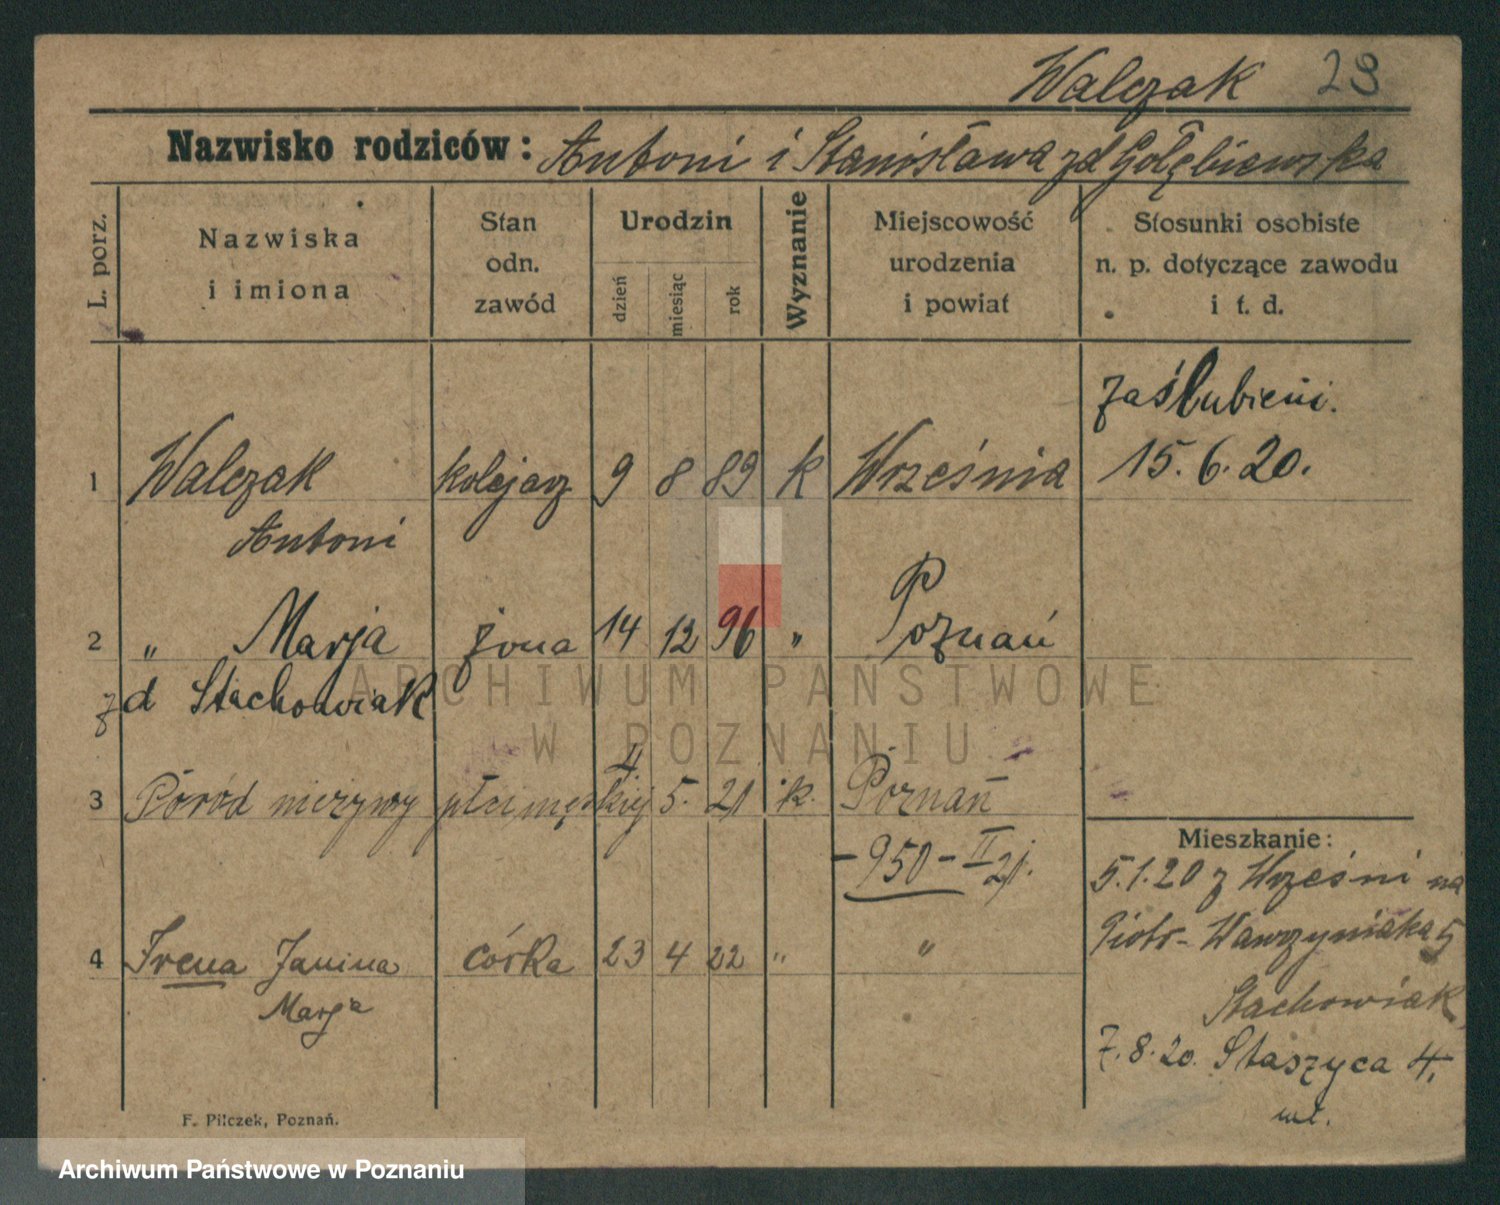 Walczak 23
Nazwisko rodziców: Antoni i Stanisława zd Gołębiewska
L. porz.
Nazwiska
i imiona
Stan
odn.
zawód
Urodzin
dzień
miesiąc
rok
Wyznanie
Miejscowość
urodzenia
i powiat
Stosunki osobiste
n. p. dotyczące zawodu
i t. d.
zaślubieni.
15. 6. 20.
1 Walczak kolejarz 9 8 89 k Września
Antoni
2 " Marja żona 14 12 96 " Poznań
zd Stachowiak
ARCHIWUM PAŃSTWOWE
W POZNANIU
3 Poród nieżywy płci męskiej 5. 21 k. Poznań
- 950 - II 21.
Mieszkanie:
5.1.20 z Wrześni na
Piotr-Wawrzyniaka 5
4 Irena Janina córka 23 4 22 " "
Marja
Stachowiak
7.8.20. Staszyca 4.
F. Pilczek, Poznań.
Archiwum Państwowe w Poznaniu